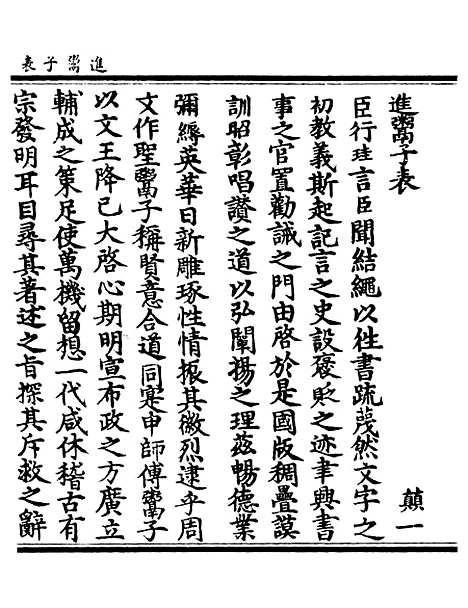 進鬻子表
進鬻子表　顛一
臣行珪言臣聞結繩以徃書疏蔑然文字之
初教義斯起記言之史設褒貶之迹聿興書
事之官置勸誡之門由啓於是國版稠疊謨
訓昭彰唱讚之道以弘闡揚之理茲暢德業
彌縟英華日新雕琢性情振其徽烈逮乎周
文作聖鬻子稱賢意合道同寔申師傅鬻子
以文王降己大啓心期明宣布政之方廣立
輔成之策足使萬機留想一代咸休稽古有
宗發明耳目尋其著述之旨探其斥救之辭